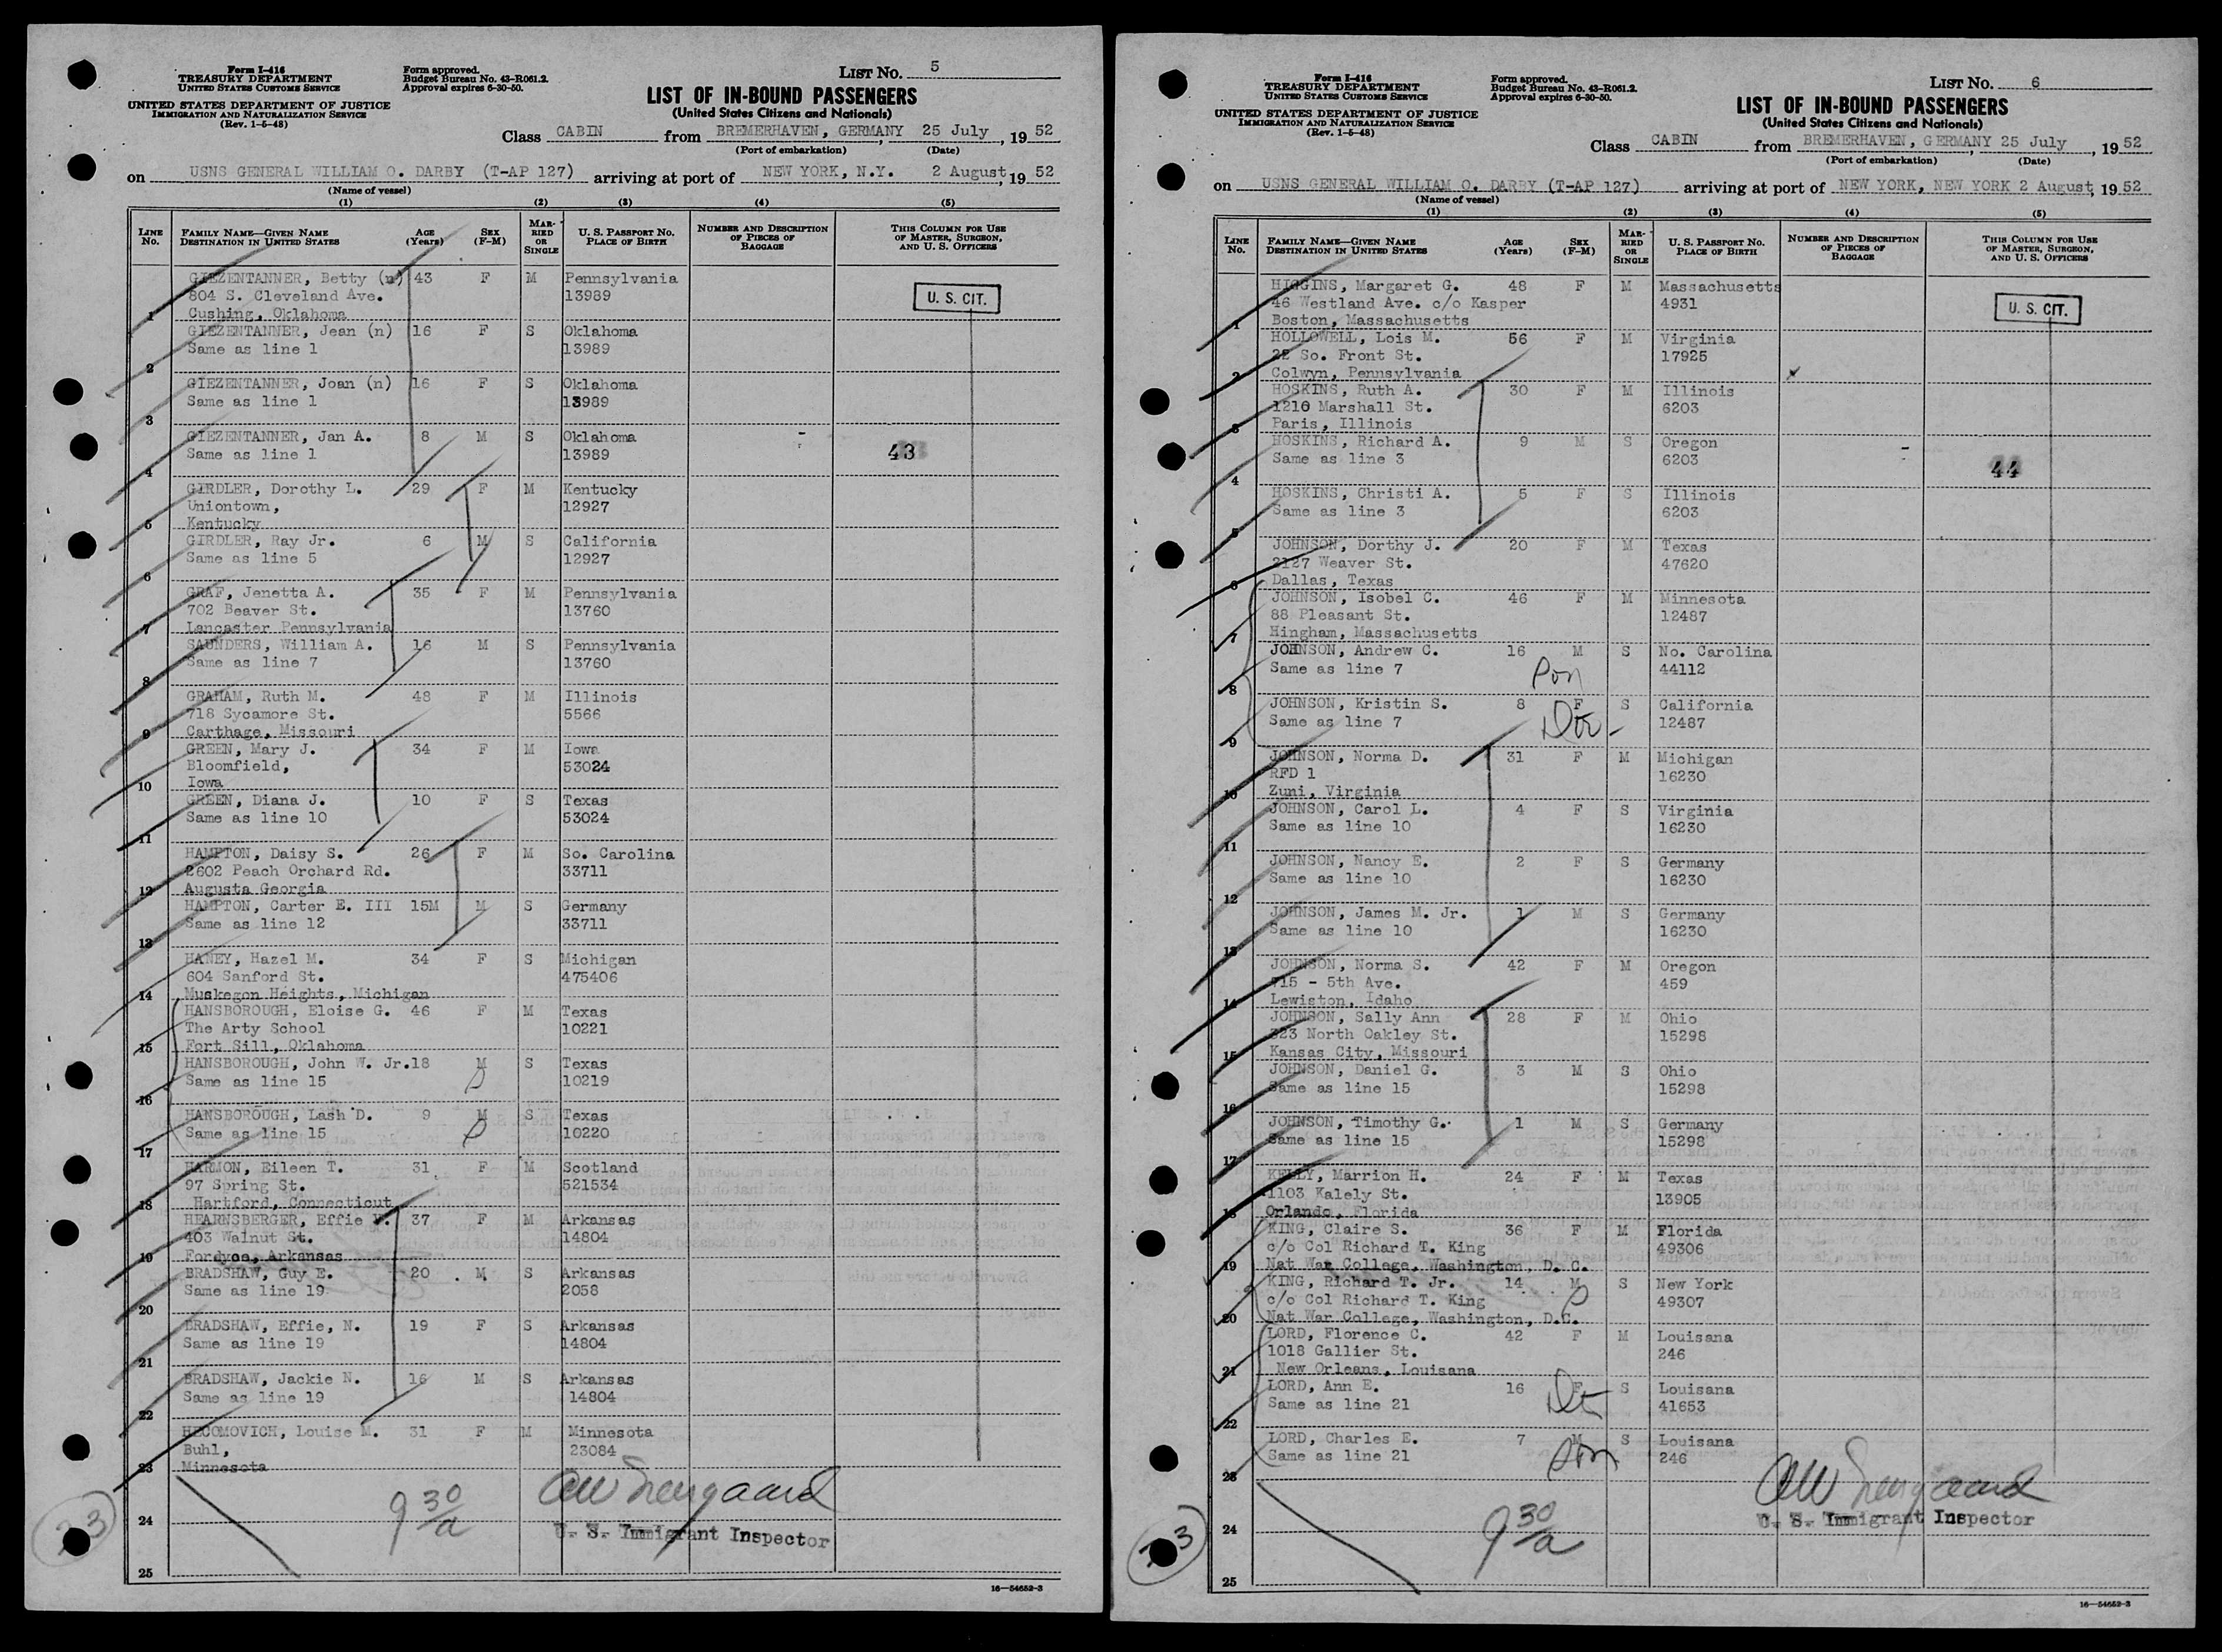 Form I-416
TREASURY DEPARTMENT
UNITED STATES CUSTOMS SERVICE
UNITED STATES DEPARTMENT OF JUSTICE
IMMIGRATION AND NATURALIZATION SERVICE
(Rev. 1-5-48)
Form approved.
Budget Bureau No. 43-R061.2.
Approval expires 6-30-50.
LIST No. 5
LIST OF IN-BOUND PASSENGERS
(United States Citizens and Nationals)
Class CABIN from BREMERHAVEN, GERMANY, 25 July, 1952
(Port of embarkation) (Date)
on USNS GENERAL WILLIAM O. DARBY (T-AP 127) arriving at port of NEW YORK, N.Y. 2 August, 1952
(Name of vessel)
(1) (2) (3) (4) (5)
LINE No. FAMILY NAME—GIVEN NAME DESTINATION IN UNITED STATES AGE (Years) SEX (F-M) MARRIED OR SINGLE U. S. PASSPORT No. PLACE OF BIRTH NUMBER AND DESCRIPTION OF PIECES OF BAGGAGE THIS COLUMN FOR USE OF MASTER, SURGEON, AND U. S. OFFICERS
GIEZENTANNER, Betty (n) 43 F M Pennsylvania
804 S. Cleveland Ave. 13989 U. S. CIT.
1 Cushing, Oklahoma
GIEZENTANNER, Jean (n) 16 F S Oklahoma
Same as line 1 13989
2
GIEZENTANNER, Joan (n) 16 F S Oklahoma
Same as line 1 13989
3
GIEZENTANNER, Jan A. 8 M S Oklahoma
Same as line 1 13989 43
4
GIRDLER, Dorothy L. 29 F M Kentucky
Uniontown, 12927
5 Kentucky
GIRDLER, Ray Jr. 6 M S California
Same as line 5 12927
6
GRAF, Jenetta A. 35 F M Pennsylvania
702 Beaver St. 13760
7 Lancaster Pennsylvania
SAUNDERS, William A. 16 M S Pennsylvania
Same as line 7 13760
8
GRAHAM, Ruth M. 48 F M Illinois
718 Sycamore St. 5566
9 Carthage, Missouri
GREEN, Mary J. 34 F M Iowa
Bloomfield, 53024
10 Iowa
GREEN, Diana J. 10 F S Texas
Same as line 10 53024
11
HAMPTON, Daisy S. 26 F M So. Carolina
2602 Peach Orchard Rd. 33711
12 Augusta Georgia
HAMPTON, Carter E. III 15M M S Germany
Same as line 12 33711
13
HANEY, Hazel M. 34 F S Michigan
604 Sanford St. 475406
14 Muskegon Heights, Michigan
HANSBOROUGH, Eloise G. 46 F M Texas
The Arty School 10221
15 Fort Sill, Oklahoma
HANSBOROUGH, John W. Jr. 18 M S Texas
Same as line 15 10219
16
HANSBOROUGH, Lash D. 9 M S Texas
Same as line 15 10220
17
HARMON, Eileen T. 31 F M Scotland
97 Spring St. 521534
18 Hartford, Connecticut
HEARNSBERGER, Effie 37 F M Arkansas
403 Walnut St. 14804
19 Fordyce, Arkansas
BRADSHAW, Guy E. 20 M S Arkansas
Same as line 19 2058
20
BRADSHAW, Effie, N. 19 F S Arkansas
Same as line 19 14804
21
BRADSHAW, Jackie N. 16 M S Arkansas
Same as line 19 14804
22
HECOMOVICH, Louise M. 31 F M Minnesota
Buhl, 23084
23 Minnesota
24 9 30/a
U. S. Immigrant Inspector
25
16—54652-3
Form I-416
TREASURY DEPARTMENT
UNITED STATES CUSTOMS SERVICE
UNITED STATES DEPARTMENT OF JUSTICE
IMMIGRATION AND NATURALIZATION SERVICE
(Rev. 1-5-48)
Form approved.
Budget Bureau No. 43-R061.2.
Approval expires 6-30-50.
LIST No. 6
LIST OF IN-BOUND PASSENGERS
(United States Citizens and Nationals)
Class CABIN from BREMERHAVEN, GERMANY 25 July, 1952
(Port of embarkation) (Date)
on USNS GENERAL WILLIAM O. DARBY (T-AP 127) arriving at port of NEW YORK, NEW YORK 2 August, 1952
(Name of vessel)
(1) (2) (3) (4) (5)
LINE No. FAMILY NAME—GIVEN NAME DESTINATION IN UNITED STATES AGE (Years) SEX (F-M) MARRIED OR SINGLE U. S. PASSPORT No. PLACE OF BIRTH NUMBER AND DESCRIPTION OF PIECES OF BAGGAGE THIS COLUMN FOR USE OF MASTER, SURGEON, AND U. S. OFFICERS
HIGGINS, Margaret G. 48 F M Massachusetts
46 Westland Ave. c/o Kasper 4931 U. S. CIT.
1 Boston, Massachusetts
HOLLOWELL, Lois M. 56 F M Virginia
22 So. Front St. 17925
2 Colwyn, Pennsylvania
HOSKINS, Ruth A. 30 F M Illinois
1216 Marshall St. 6203
3 Paris, Illinois
HOSKINS, Richard A. 9 M S Oregon
Same as line 3 6203 44
4
HOSKINS, Christi A. 5 F S Illinois
Same as line 3 6203
5
JOHNSON, Dorthy J. 20 F M Texas
2127 Weaver St. 47620
6 Dallas, Texas
JOHNSON, Isobel C. 46 F M Minnesota
88 Pleasant St. 12487
7 Hingham, Massachusetts
JOHNSON, Andrew C. 16 M S No. Carolina
Same as line 7 Son 44112
8
JOHNSON, Kristin S. 8 F S California
Same as line 7 12487
9
JOHNSON, Norma D. 31 F M Michigan
RFD 1 16230
10 Zuni, Virginia
JOHNSON, Carol L. 4 F S Virginia
Same as line 10 16230
11
JOHNSON, Nancy E. 2 F S Germany
Same as line 10 16230
12
JOHNSON, James M. Jr. 1 M S Germany
Same as line 10 16230
13
JOHNSON, Norma S. 42 F M Oregon
715 - 5th Ave. 459
14 Lewiston, Idaho
JOHNSON, Sally Ann 28 F M Ohio
323 North Oakley St. 15298
15 Kansas City, Missouri
JOHNSON, Daniel G. 3 M S Ohio
Same as line 15 15298
16
JOHNSON, Timothy G. 1 M S Germany
Same as line 15 15298
17
KELLY, Marrion H. 24 F M Texas
1103 Kalely St. 13905
18 Orlando, Florida
KING, Claire S. 36 F M Florida
c/o Col Richard T. King 49306
19 Nat War College, Washington, D. C.
KING, Richard T. Jr. 14 M S New York
c/o Col Richard T. King 49307
20 Nat War College, Washington, D.C.
LORD, Florence C. 42 F M Louisana
1018 Gallier St. 246
21 New Orleans, Louisana
LORD, Ann E. 16 F S Louisana
Same as line 21 41653
22
LORD, Charles E. 7 M S Louisana
Same as line 21 Son 246
23
24 9 30/a
U. S. Immigrant Inspector
25
16—54652-3